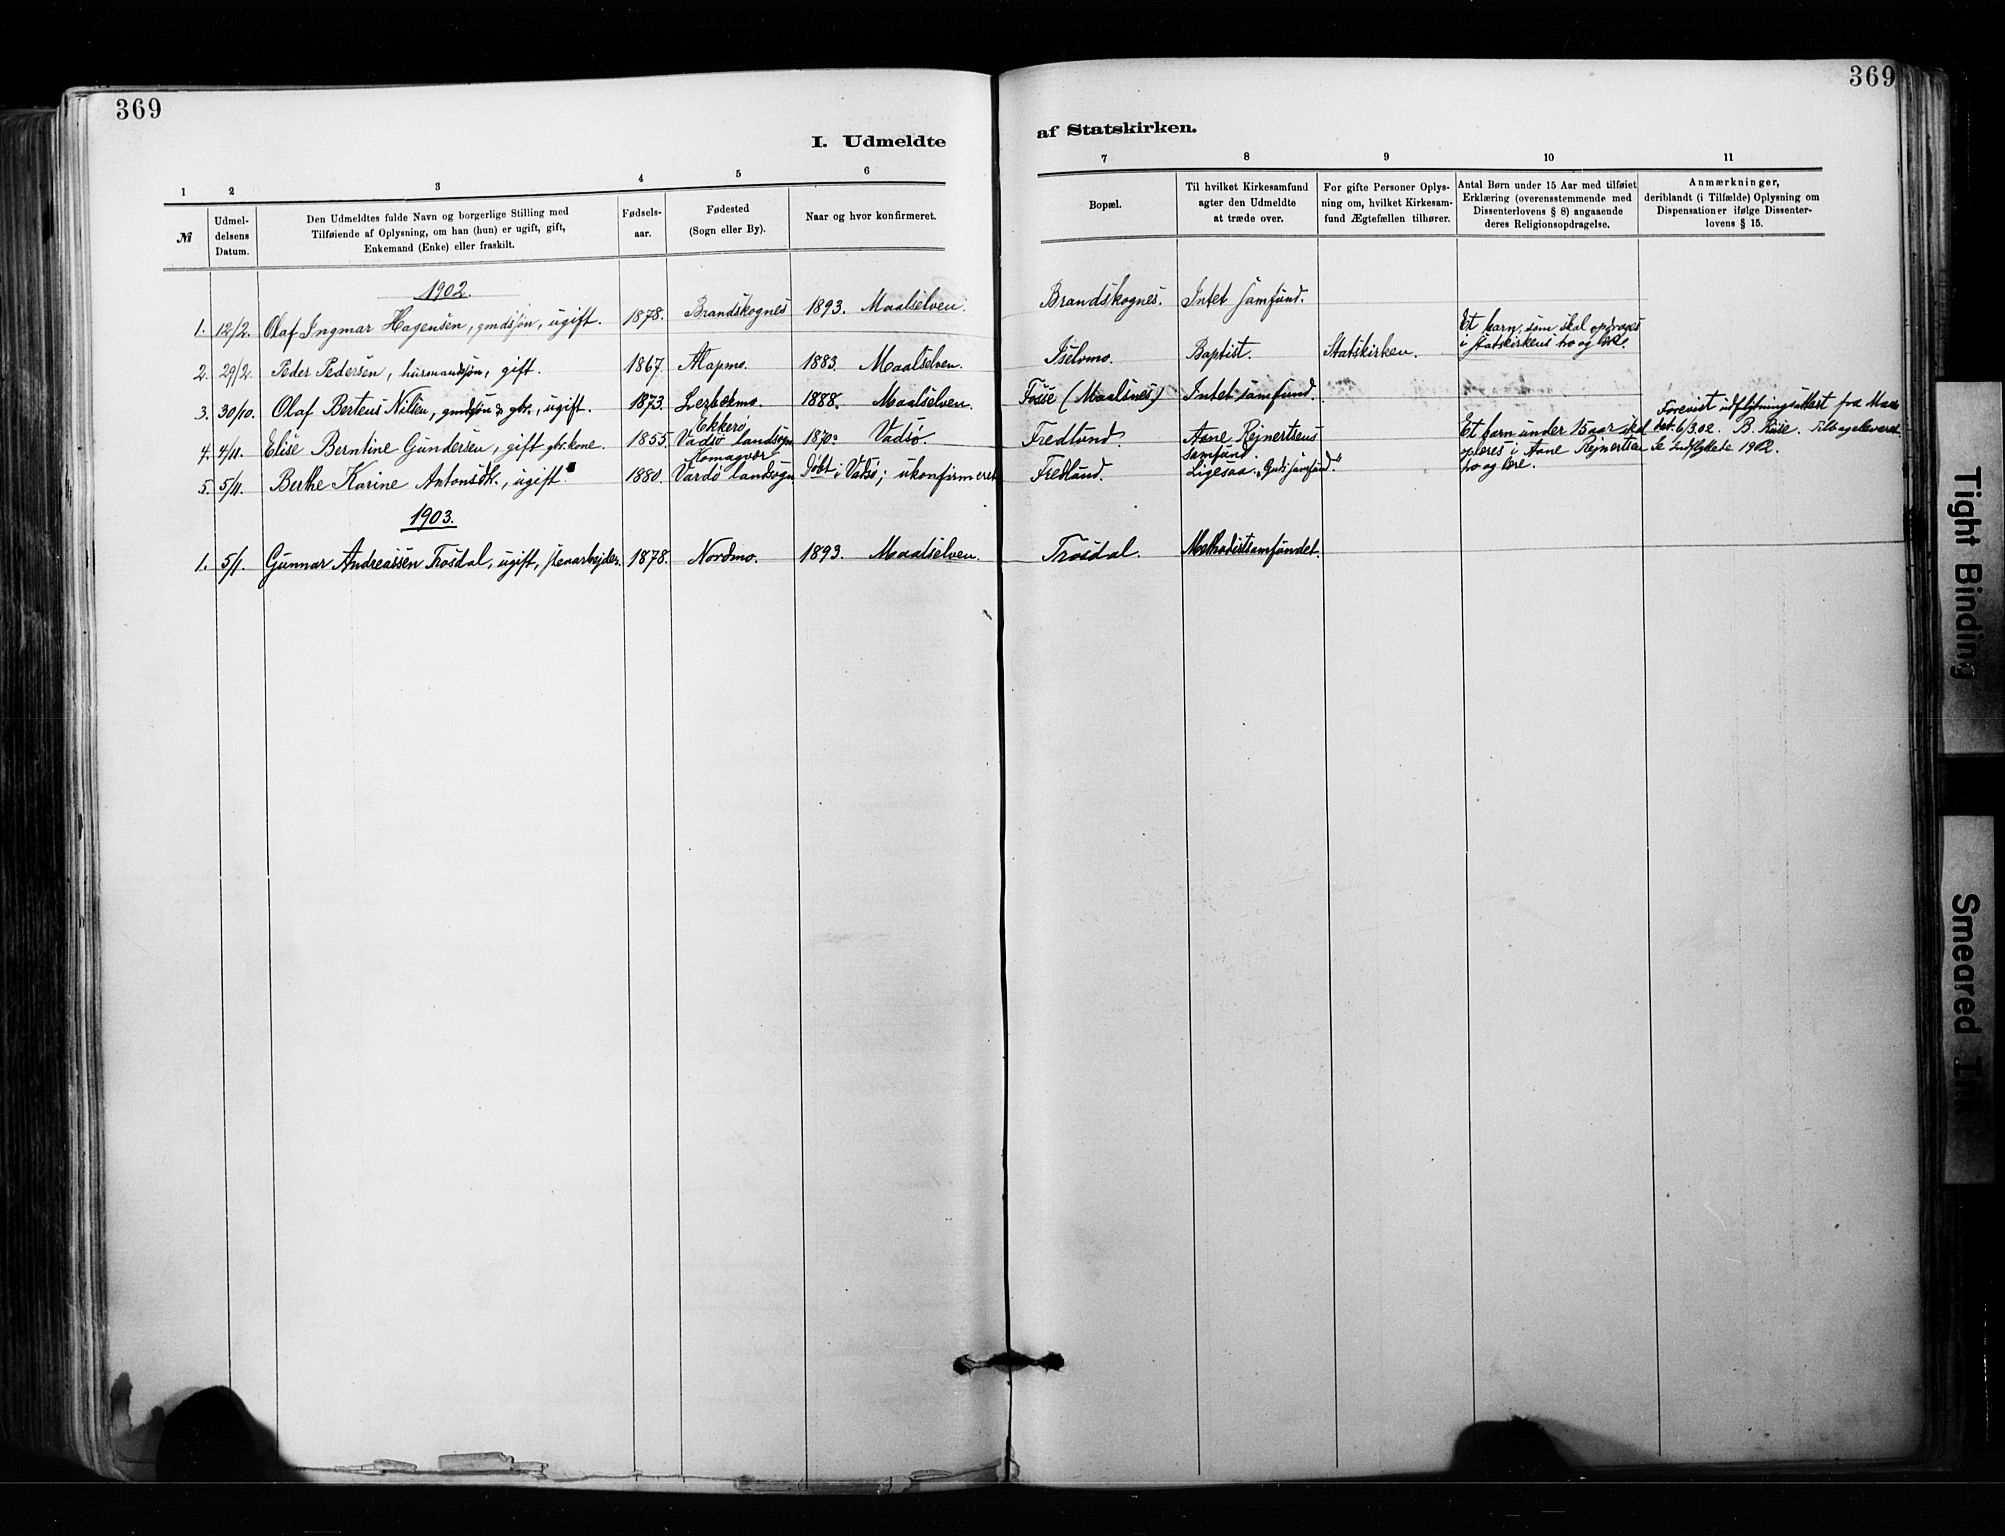 369
369
I. Udmeldte
af Statskirken.
1 2 3 4 5 6 7 8 9 10 11
№
Udmel-
delsens
Datum.
Den Udmeldtes fulde Navn og borgerlige Stilling med
Tilføiende af Oplysning, om han (hun) er ugift, gift,
Enkemand (Enke) eller fraskilt.
Fødsels-
aar.
Fødested
(Sogn eller By).
Naar og hvor konfirmeret.
Bopæl.
Til hvilket Kirkesamfund
agter den Udmeldte
at træde over.
For gifte Personer Oplys-
ning om, hvilket Kirkesam-
fund Ægtefællen tilhører.
Antal Børn under 15 Aar med tilføiet
Erklæring (overensstemmende med
Dissenterlovens § 8) angaaende
deres Religionsopdragelse.
Anmærkninger,
deriblandt (i Tilfælde) Oplysning om
Dispensationer ifølge Dissenter-
lovens § 15.
1902.
1. 12/2. Olaf Ingmar Hagensen, gmdsøn, ugift. 1878. Brandskognes 1893. Maalselven. Brandskognes. Intet samfund.
2. 29/2. Peder Pedersen, husmandsøn, gift. 1867. Alapmo. 1883. Maalselven. Iselvmo. Baptist. Statskirken. Et barn, som skal opdrages
i statskirkens tro og lære.
3. 30/10. Olaf Berteus Nilsen, gmdsøn & gbr., ugift. 1873. 1888. Maalselven. Fosse (Maalsnes) Intet samfund.
4. 4/11. Elise Berntine Gundersen, gift gbr.kone. 1855. Ekkerø
Vadsø landsogn 1870. Vadsø. Fredlund Aane Rejnertsens
samfund. Et barn under 15 aar skal
opdres i Aane Rejnertsen
tro og lære. Forevist udflytningsattest fra
dat. 6/3 02. B. Tilbageleveret.
Se Indflyttede 1902.
5. 5/11. Berthe Karine Antonsdtr., ugift. 1880. Komagvær
Vardø landsogn Døbt i Vadsø; ukonfirmeret Fredlund. Ligesaa „Guds samfund."
1903.
1. 5/1. Gunnar Andreassen Trosdal, ugift, stenarbejder. 1878. Nordmo. 1893. Maalselven. Trosdal. Methodistsamfundet.
Tight Binding
Smeared Ink